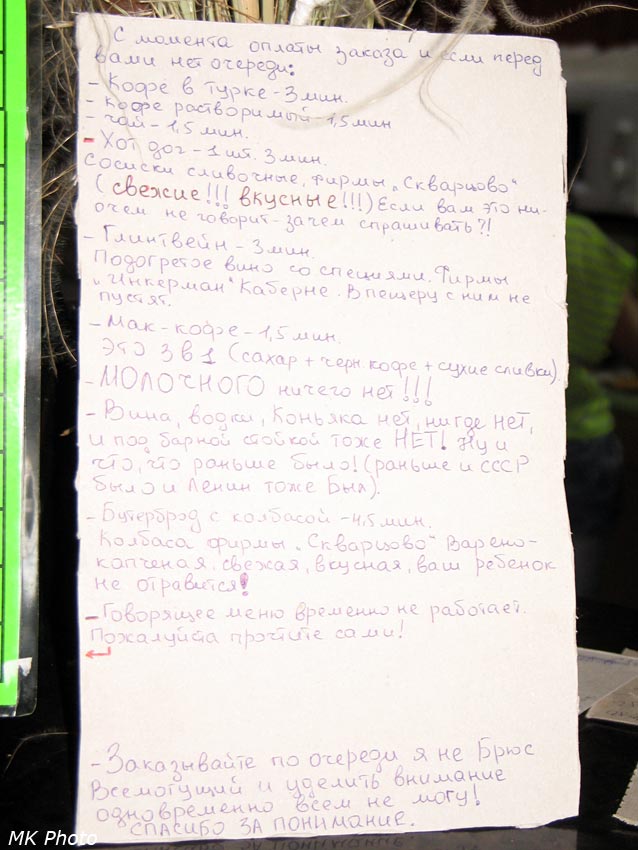 С момента оплаты заказа и если перед
вами нет очереди:
- Кофе в турке - 3 мин.
- кофе растворимый - 1,5 мин
- чай - 1,5 мин.
- Хот дог - 1 шт. 3 мин.
Сосиски сливочные, фирмы „Скварцово"
(свежие!!! вкусные!!!) Если вам это ни-
о чем не говорит - зачем спрашивать?!
- Глинтвейн - 3 мин.
Подогретое вино со специями. Фирмы
„Инкерман" Каберне. В пещеру с ним не
пустят.
- Мак-кофе - 1,5 мин.
Это 3 в 1 (сахар + черн. кофе + сухие сливки).
- МОЛОЧНОГО ничего нет!!!
- Вина, водки, Коньяка нет, нигде нет,
и под барной стойкой тоже НЕТ! Ну и
что, что раньше было! (раньше и СССР
было и Ленин тоже Был).
- Бутерброд с колбасой - 4,5 мин.
Колбаса фирмы „Скварцово" Варено-
копченая. свежая, вкусная, ваш ребенок
не отравится!
- Говорящее меню временно не работает.
Пожалуйста прочтите сами!
- Заказывайте по очереди я не Брюс
Всемогущий и уделить внимание
одновременно всем не могу!
СПАСИБО ЗА ПОНИМАНИЕ.
MK Photo